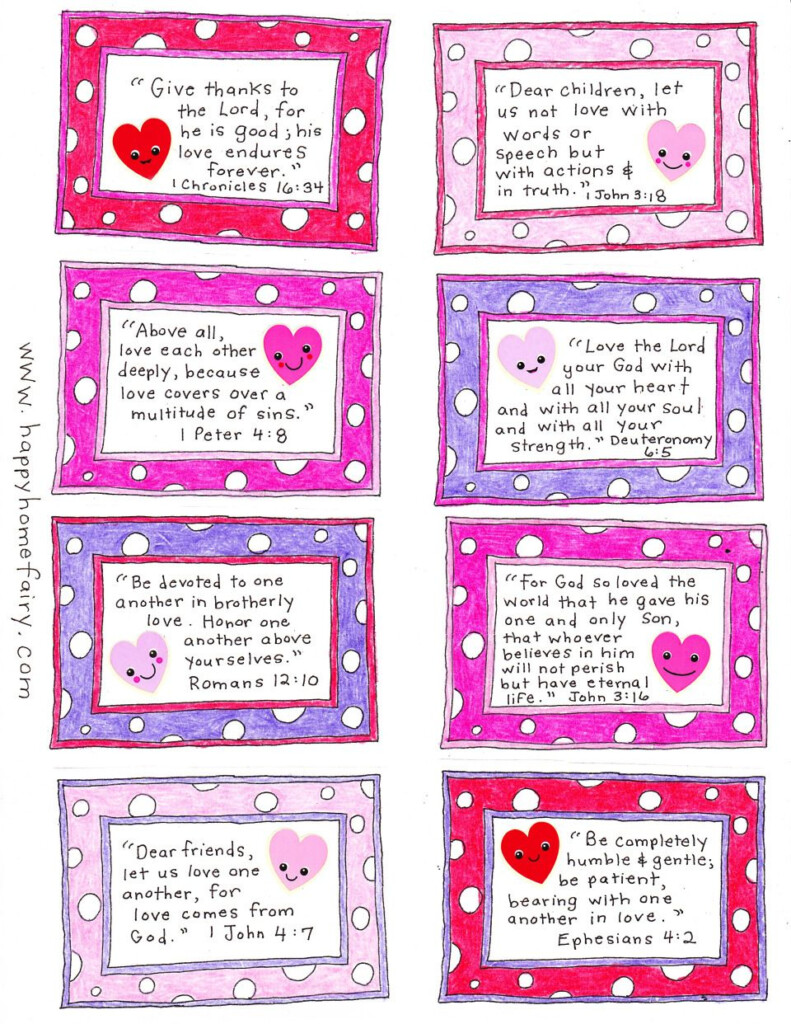 “Give thanks to
the Lord, for
he is good; his
love endures
forever.”
1 Chronicles 16:34
“Dear children, let
us not love with
words or
speech but
with actions &
in truth.” 1 John 3:18
“Above all,
love each other
deeply, because
love covers over a
multitude of sins.”
1 Peter 4:8
“Love the Lord
your God with
all your heart
and with all your soul
and with all your
strength.” Deuteronomy
6:5
“Be devoted to one
another in brotherly
love. Honor one
another above
yourselves.”
Romans 12:10
“For God so loved the
world that he gave his
one and only Son,
that whoever
believes in him
will not perish
but have eternal
life.” John 3:16
“Dear friends,
let us love one
another, for
love comes from
God.” 1 John 4:7
“Be completely
humble & gentle;
be patient,
bearing with one
another in love.”
Ephesians 4:2
www.happyhomefairy.com